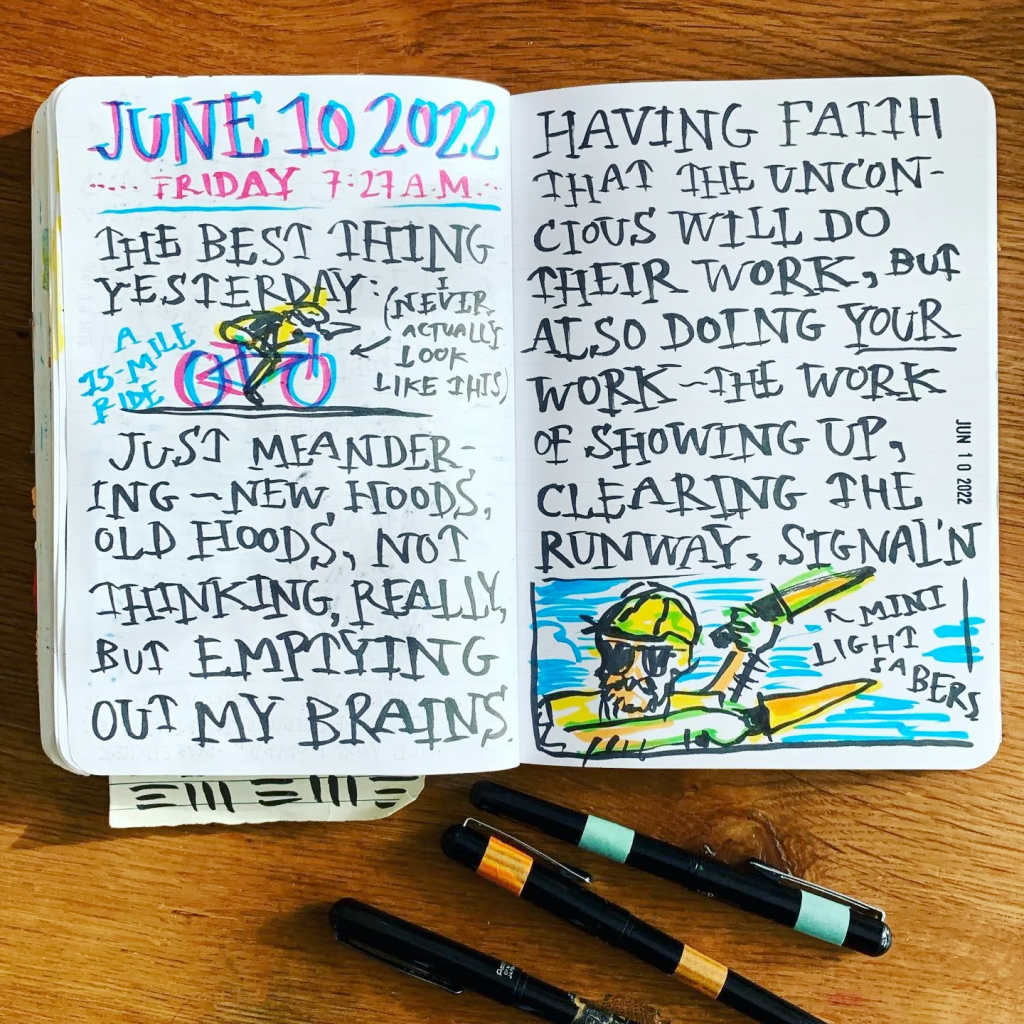 JUNE 10 2022
FRIDAY 7:27 A.M.
THE BEST THING
YESTERDAY:
A
15-MILE
RIDE
(I NEVER
ACTUALLY
LOOK
LIKE THIS)
JUST MEANDER-
ING – NEW HOODS,
OLD HOODS, NOT
THINKING, REALLY,
BUT EMPTYING
OUT MY BRAINS.
HAVING FAITH
THAT THE UNCON-
CIOUS WILL DO
THEIR WORK, BUT
ALSO DOING YOUR
WORK – THE WORK
OF SHOWING UP,
CLEARING THE
RUNWAY, SIGNAL'N
JUN 10 2022
MINI
LIGHT
SABERS